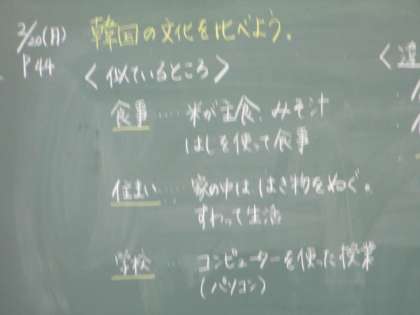 2/20(月)
P44
韓国の文化を比べよう。
〈似ているところ〉
食事……米が主食、みそ汁
はしを使って食事
住まい……家の中は はき物をぬぐ。
すわって生活
学校……コンピューターを使った授業
(パソコン)
〈違